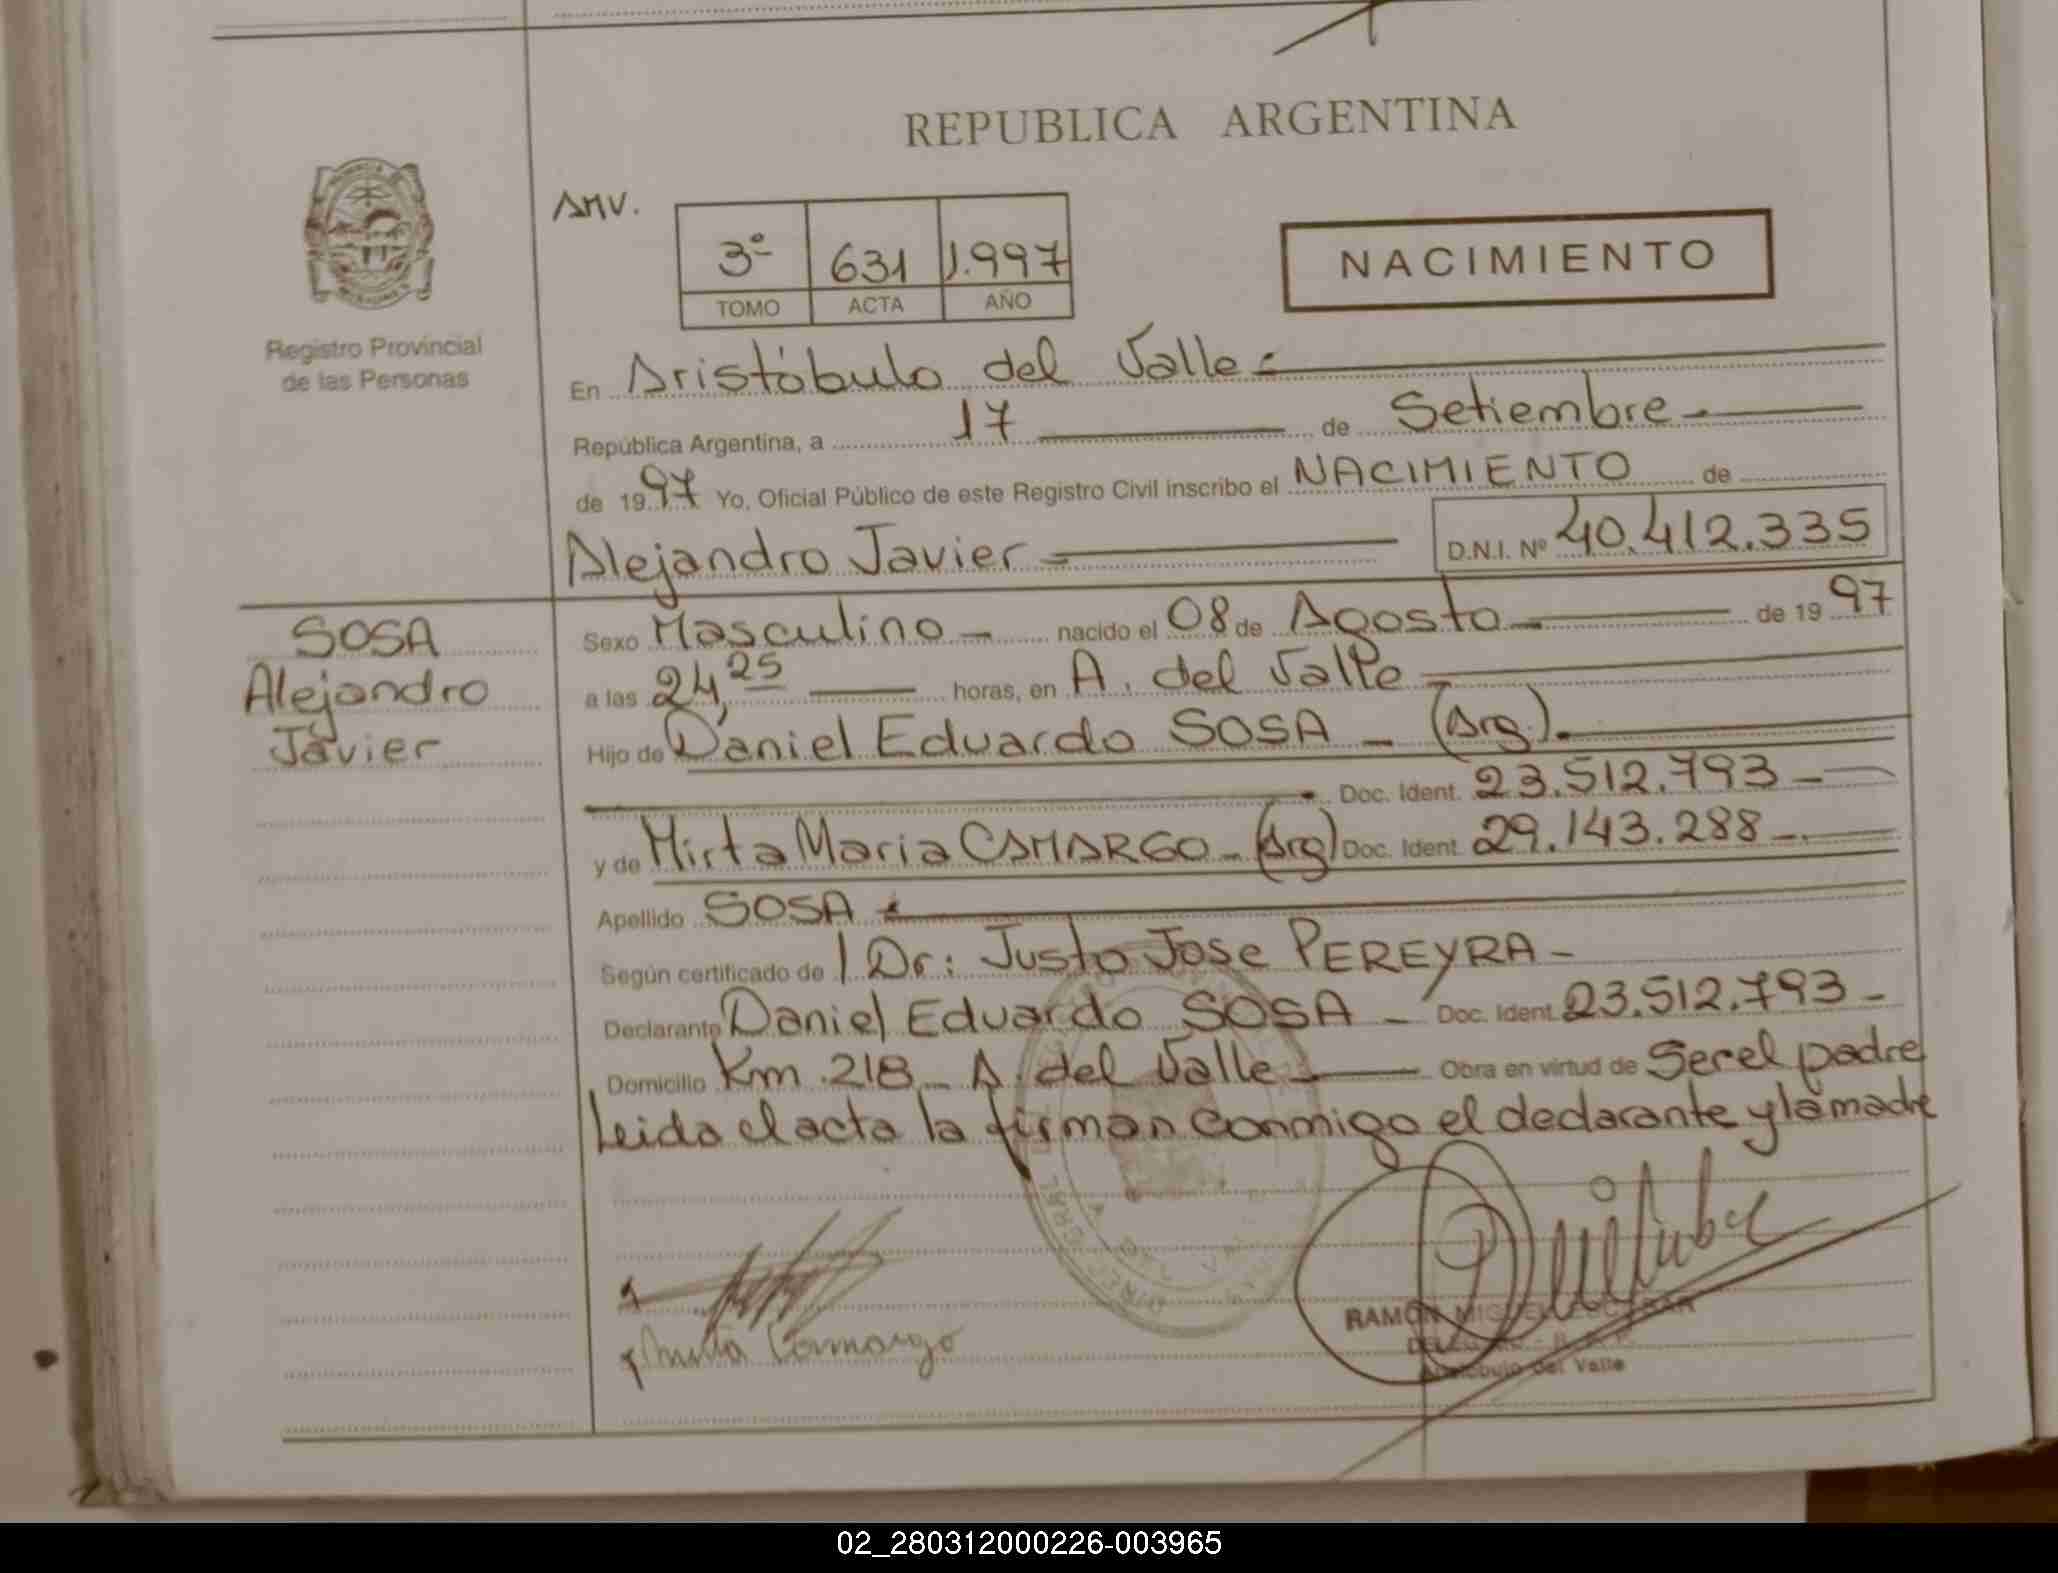 REPUBLICA ARGENTINA
AMV.
3º 631 1.997
TOMO ACTA AÑO
NACIMIENTO
Registro Provincial
de las Personas
En Aristóbulo del Valle
República Argentina, a 17 de Setiembre
de 1997 Yo, Oficial Público de este Registro Civil inscribo el NACIMIENTO de
Alejandro Javier D.N.I. Nº 40.412.335
SOSA
Alejandro
Javier
Sexo Masculino nacido el 08 de Agosto de 1997
a las 24,25 horas, en A. del Valle
Hijo de Daniel Eduardo SOSA (Arg).
Doc. Ident. 23.512.793
y de Mirta Maria CAMARGO (Arg) Doc. Ident. 29.143.288
Apellido SOSA
Según certificado de Dr: Justo Jose PEREYRA
Declarante Daniel Eduardo SOSA Doc. Ident. 23.512.793
Domicilio Km 218 A. del Valle Obra en virtud de Ser el padre
Leida el acta la firman conmigo el declarante y la madre
Camargo
RAMÓN MIGUEL
Aristobulo del Valle
02_280312000226-003965